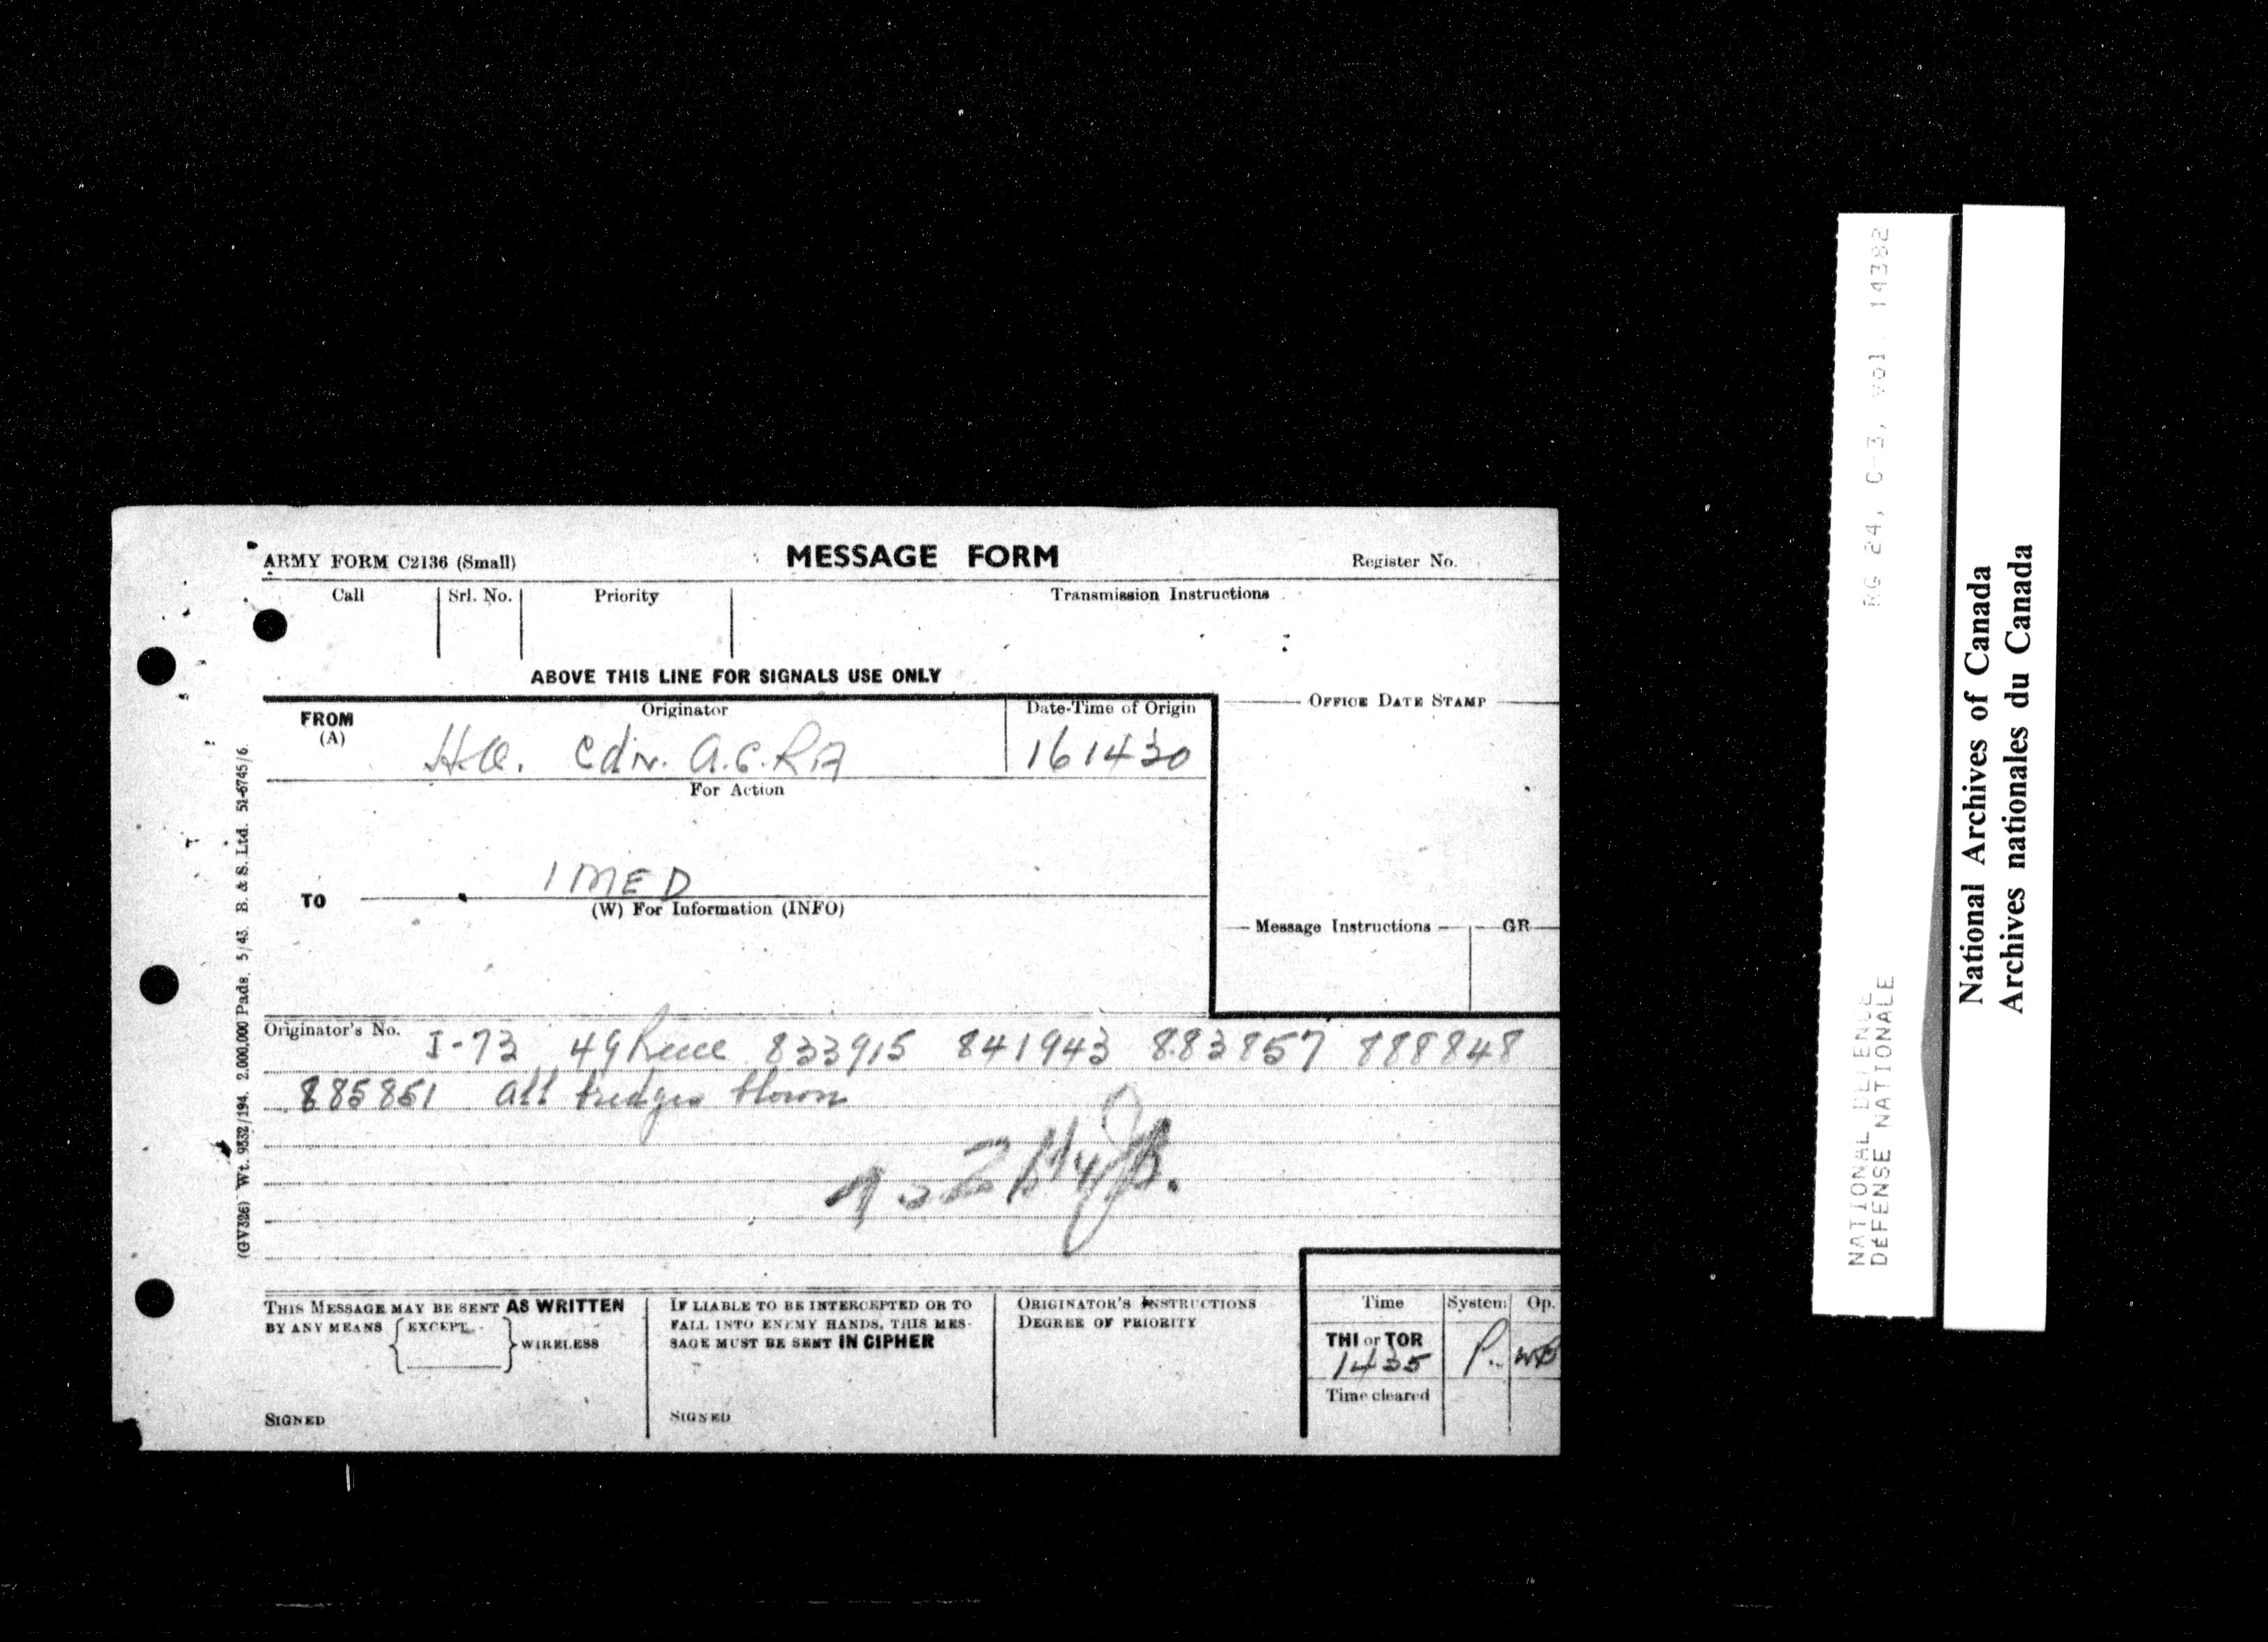 ARMY FORM C2136 (Small)
MESSAGE FORM
Register No.
Call
Srl. No.
Priority
Transmission Instructions
ABOVE THIS LINE FOR SIGNALS USE ONLY
FROM
(A)
Originator
Date-Time of Origin
OFFICE DATE STAMP
H.Q. Cdn. A.G.RA
161430
For Action
1 MED
TO
(W) For Information (INFO)
Message Instructions
GR
Originator's No. I-73 49 Recce 833915 841943 883857 888848
885851 all bridges blown
THIS MESSAGE MAY BE SENT AS WRITTEN
BY ANY MEANS
EXCEPT
WIRELESS
SIGNED
IF LIABLE TO BE INTERCEPTED OR TO
FALL INTO ENEMY HANDS, THIS MES-
SAGE MUST BE SENT IN CIPHER
SIGNED
ORIGINATOR'S INSTRUCTIONS
DEGREE OF PRIORITY
Time
System
Op.
THI or TOR
1435
P.
WB
Time cleared
(GV326) Wt. 9532/194. 2,000,000 Pads. 5/43. B. & S. Ltd. 51-6745/6
RG 24, C-3, vol. 14382
NATIONAL DEFENCE
DÉFENSE NATIONALE
National Archives of Canada
Archives nationales du Canada